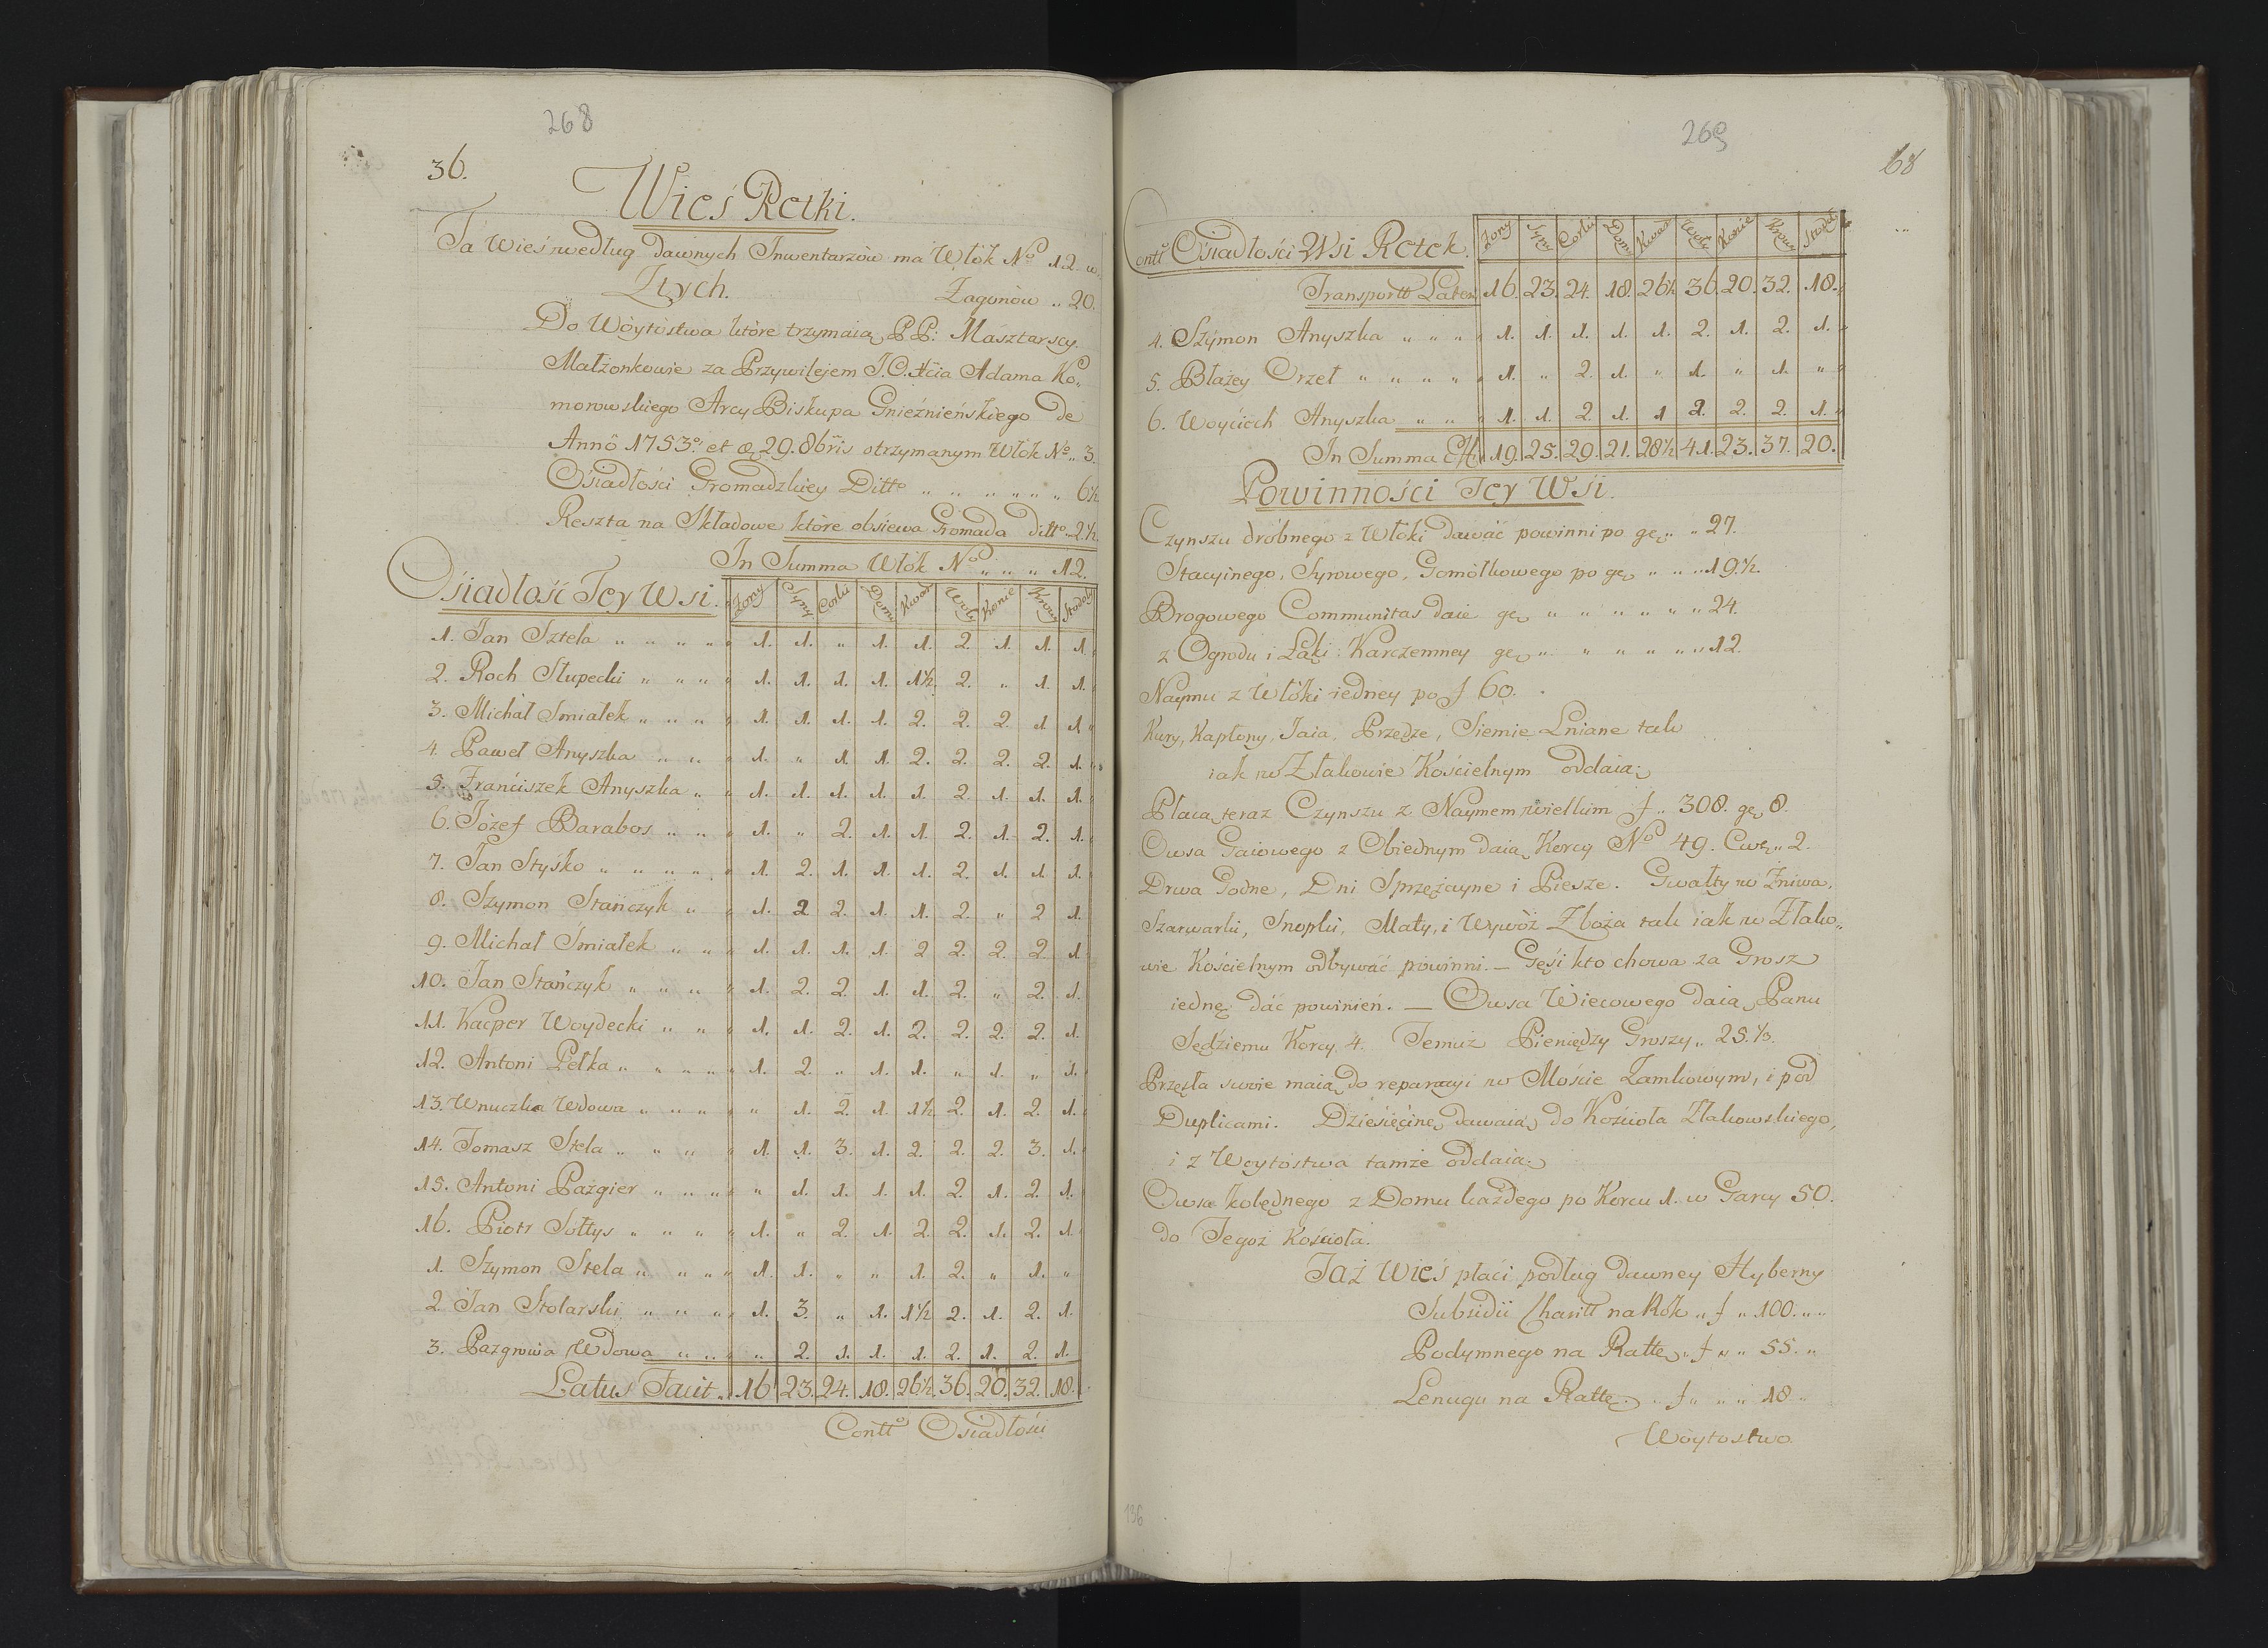 268
36.
Wieś Retki.
Ta Wieś według dawnych Inwentarzów ma Włók No 12. w
Ztych. Zagonów „ 20.
Do Wóytostwa które trzymaią PP: Masztarscy
Małżonkowie za Przywilejem J.O. Xcia Adama Ko„
morowskiego Arcy Biskupa Gnieźnieńskiego de
Annô 1753o: et 29. 8bris otrzymanym Włók No „ 3.
Osiadłości Gromadzkiey Ditto „ „ „ „ „ „ 6½
Reszta na Składowe które obsiewa Gromada ditto „ 2½.
In Summa Włók No „ „ „ 12.
Osiadłość Tey Wsi. Żony Syny Corki Domy Kwar Woły Konie Krowy Stodoły
1. Jan Sztela „ „ „ „ „ 1. 1. „ 1. 1. 2. 1. 1. 1.
2. Roch Słupecki „ „ „ „ 1. 1. 1. 1. 1½. 2. „ 1. 1.
3. Michał Smiałek „ „ „ „ 1. 1. 1. 1. 2. 2. 2. 1 1
4. Paweł Anyszka „ „ „ 1. „ 1 1. 2. 2. 2. 2. 1.
5. Franciszek Anyszka „ „ 1. 1. 1. 1. 1. 2. 1. 1. 1.
6. Józef Barabos „ „ „ 1. „ 2. 1. 1. 2. 1. 2. 1.
7. Jan Styśko „ „ „ „ „ 1. 2. 1. 1. 1. 2. 1. 1. 1.
8. Szymon Stańczyk „ „ 1. 2 2. 1. 1. 2. „ 2 1.
9. Michał Smiałek „ „ „ 1. 1. 1. 1. 2 2. 2. 2. 1
10. Jan Stańczyk „ „ „ „ 1. 2. 2. 1. 1. 2. „ 2. 1.
11. Kacper Woydecki „ „ „ 1. 1. 2. 1. 2. 2. 2. 2. 1.
12. Antoni Pełka „ „ „ „ „ 1. 2. „ 1. 1. „ 1. „ 1.
13. Wnuczka Wdowa „ „ „ „ „ 1. 2. 1. 1½ 2. 1. 2. 1.
14. Tomasz Stela „ „ „ „ 1. 1. 3. 1. 2. 2. 2. 3. 1.
15. Antoni Pazgier „ „ „ „ „ 1. 1. 1. 1. 2. 1. 2. 1.
16. Piotr Sołtys „ „ „ „ 1. „ 2. 1. 2. 2. 1. 2. 1.
1. Szymon Stela „ „ „ „ 1. 1. „ „ 1. 2. „ 1. „
2 Jan Stolarski „ „ „ „ 1. 3. „ 1. 1½ 2. 1. 2. 1.
3. Pazgrowa Wdowa „ „ „ „ 2. 1. 1. 1. 2. 1. 2. 1.
Latus Facit „ 16 23. 24. 18. 26½. 36. 20. 32. 18.
Contto Osiadłości
269
68
Contto Osiadłości Wsi Retek. Żony Syny Corki Domy Kwar Woły Konie Krowy Stodoły
Transportt Latens 16. 23. 24. 18. 26½ 36. 20. 32. 18.
4. Szymon Anyszka „ „ „ „ 1. 1. 1. 1. 1. 2. 1. 2. 1.
5. Błażey Orzeł „ „ „ „ „ 1. „ 2. 1. „ 1. „ 1. „
6. Woyciech Anyszka „ „ „ 1. 1. 2. 1. 1 2. 2. 2. 1.
In Summa Eff: 19. 25. 29. 21. 28½ 41. 23. 37. 20.
Powinności Tey Wsi.
Czynszu drobnego z Włóki dawać powinni po gę „ „ 27.
Stacyinego, Syrowego, Gomółkowego po gę „ „ „ 19.½.
Brogowego Communitas daie gę „ „ „ „ „ „ 24.
z Ogrodu i Łąki Karczemney gę „ „ „ „ „ „ 12.
Naymu z Włóki iedney po f 60.
Kury, Kapłony, Jaia, Przędze, Siemie Lniane tak
iak w Złakowie Kościelnym oddaią.
Płacą teraz Czynszu z Naymem wielkim f „ 308. gę 8.
Owsa Gaiowego z Obiednym daią Korcy No 49. Cwę „ 2.
Drwa Godne, Dni Sprzężayne i Piesze. Gwałty w Żniwa,
Szarwarki, Snopki, Maty, i Wywóz Zboża tak iak w Złako„
wie Kościelnym odbywać powinni. — Gęsi kto chowa za Grosz
iednę dać powinień. — Owsa Wiecowego daią Panu
Sędziemu Korcy 4. Temuż Pieniędzy Groszy „ 25.⅓.
Przęsła swoie maią do reparacyi w Moście Zamkowym, i pod
Duplicami. Dziesięcinę dawaią do Kościoła Złakowskiego,
i z Woytostwa tamże oddaią.
Owsa kolędnego z Domu każdego po Korcu 1. w Garcy 50.
do Tegoż Kościoła.
Taż Wieś płaci podług dawney Hyberny
Subsidii Charitt na Rok „ f „ 100. „ „
Podymnego na Rattę „ f „ „ 55. „
Lenugu na Rattę „ f „ „ „ 18 „
Wóytostwo
136